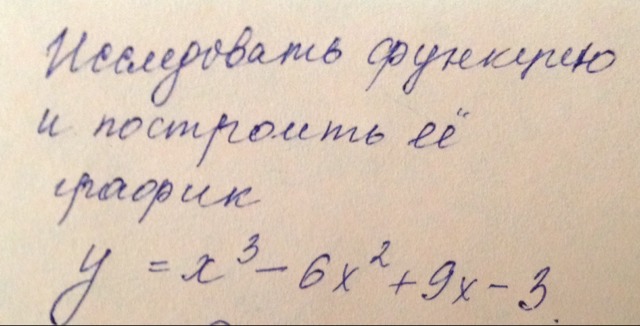 Исследовать функцию
и построить её
график
y = x³ - 6x² + 9x - 3